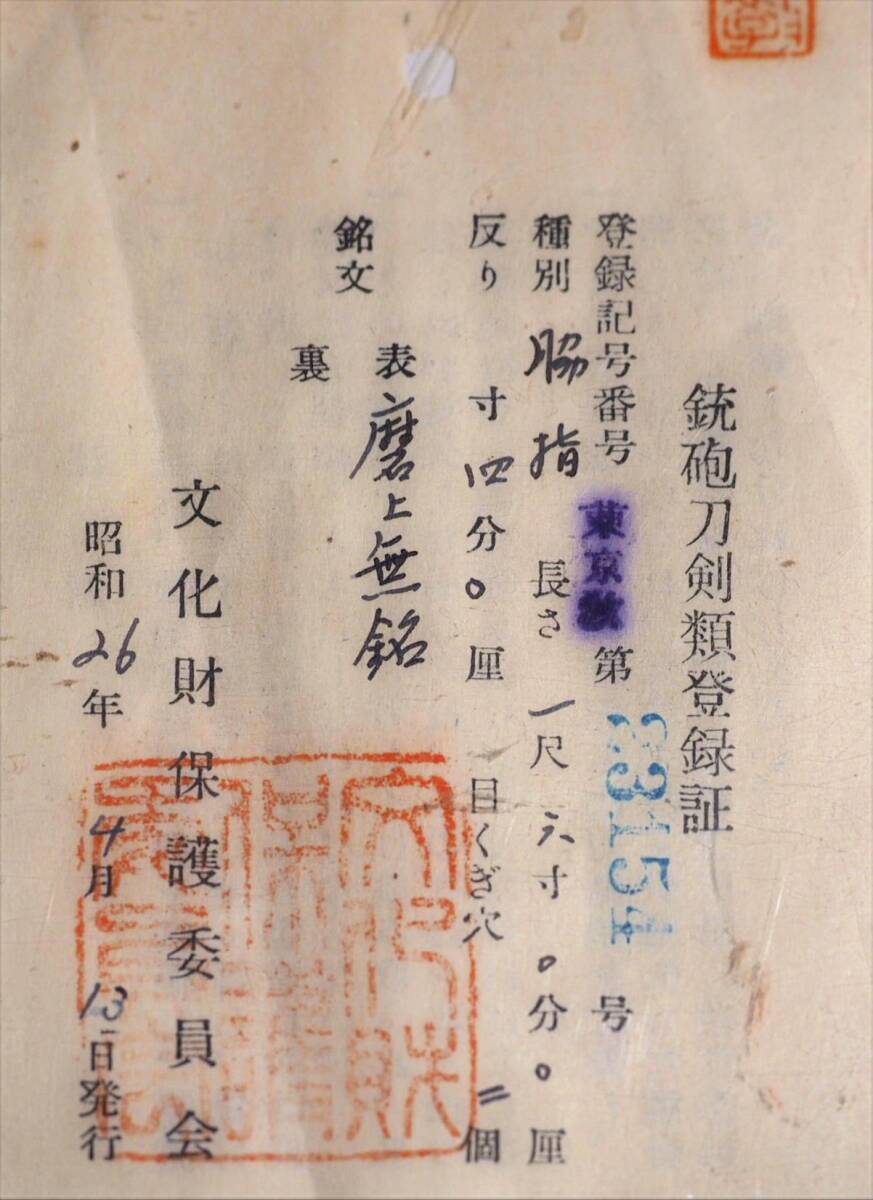 銃砲刀剣類登録証
登録記号番号 東京 第 23154 号
種別 脇指 長さ 一尺 六寸 0分 0厘
反り 寸 四分 0厘 目くぎ穴 二個
銘文
表 磨上無銘
裏
文化財保護委員会
昭和26年 4月 13日発行